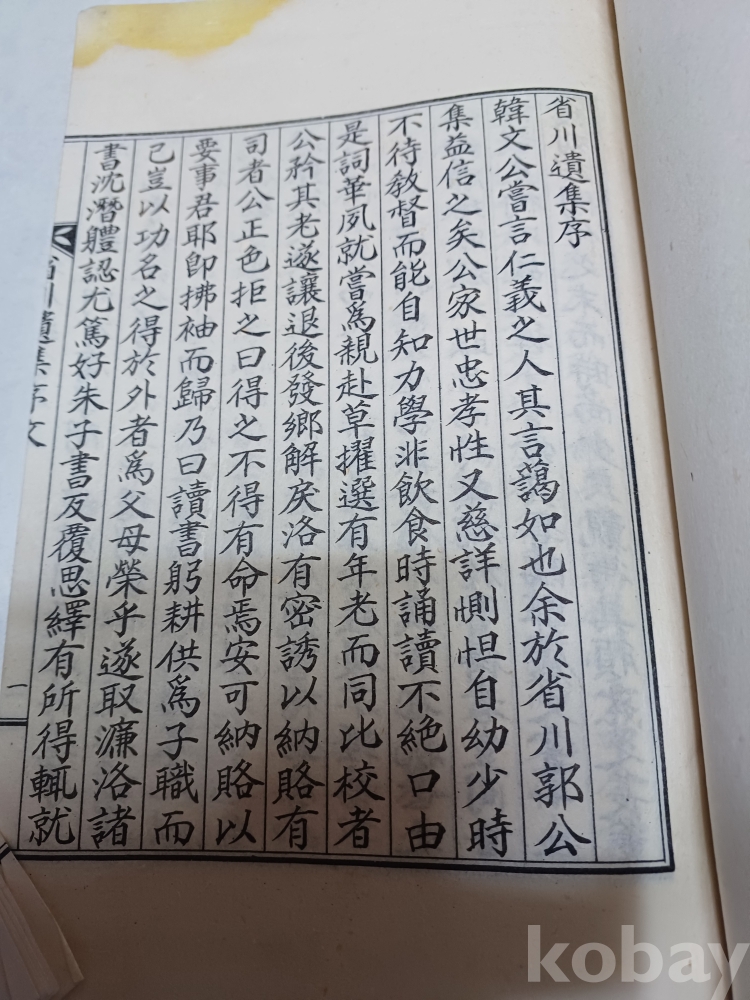 省川遺集序
韓文公嘗言仁義之人其言藹如也余於省川郭公
集益信之矣公家世忠孝性又慈詳惻怛自幼少時
不待敎督而能自知力學非飮食時誦讀不絶口由
是詞華夙就嘗爲親赴草擢選有年老而同比校者
公矜其老遂讓退後發鄕解戾洛有密誘以納賂有
司者公正色拒之曰得之不得有命焉安可納賂以
要事君耶卽拂袖而歸乃曰讀書躬耕供爲子職而
己豈以功名之得於外者爲父母榮乎遂取濂洛諸
書沈潛軆認尤篤好朱子書反覆思繹有所得輒就
省川遺集序文
一
kobay